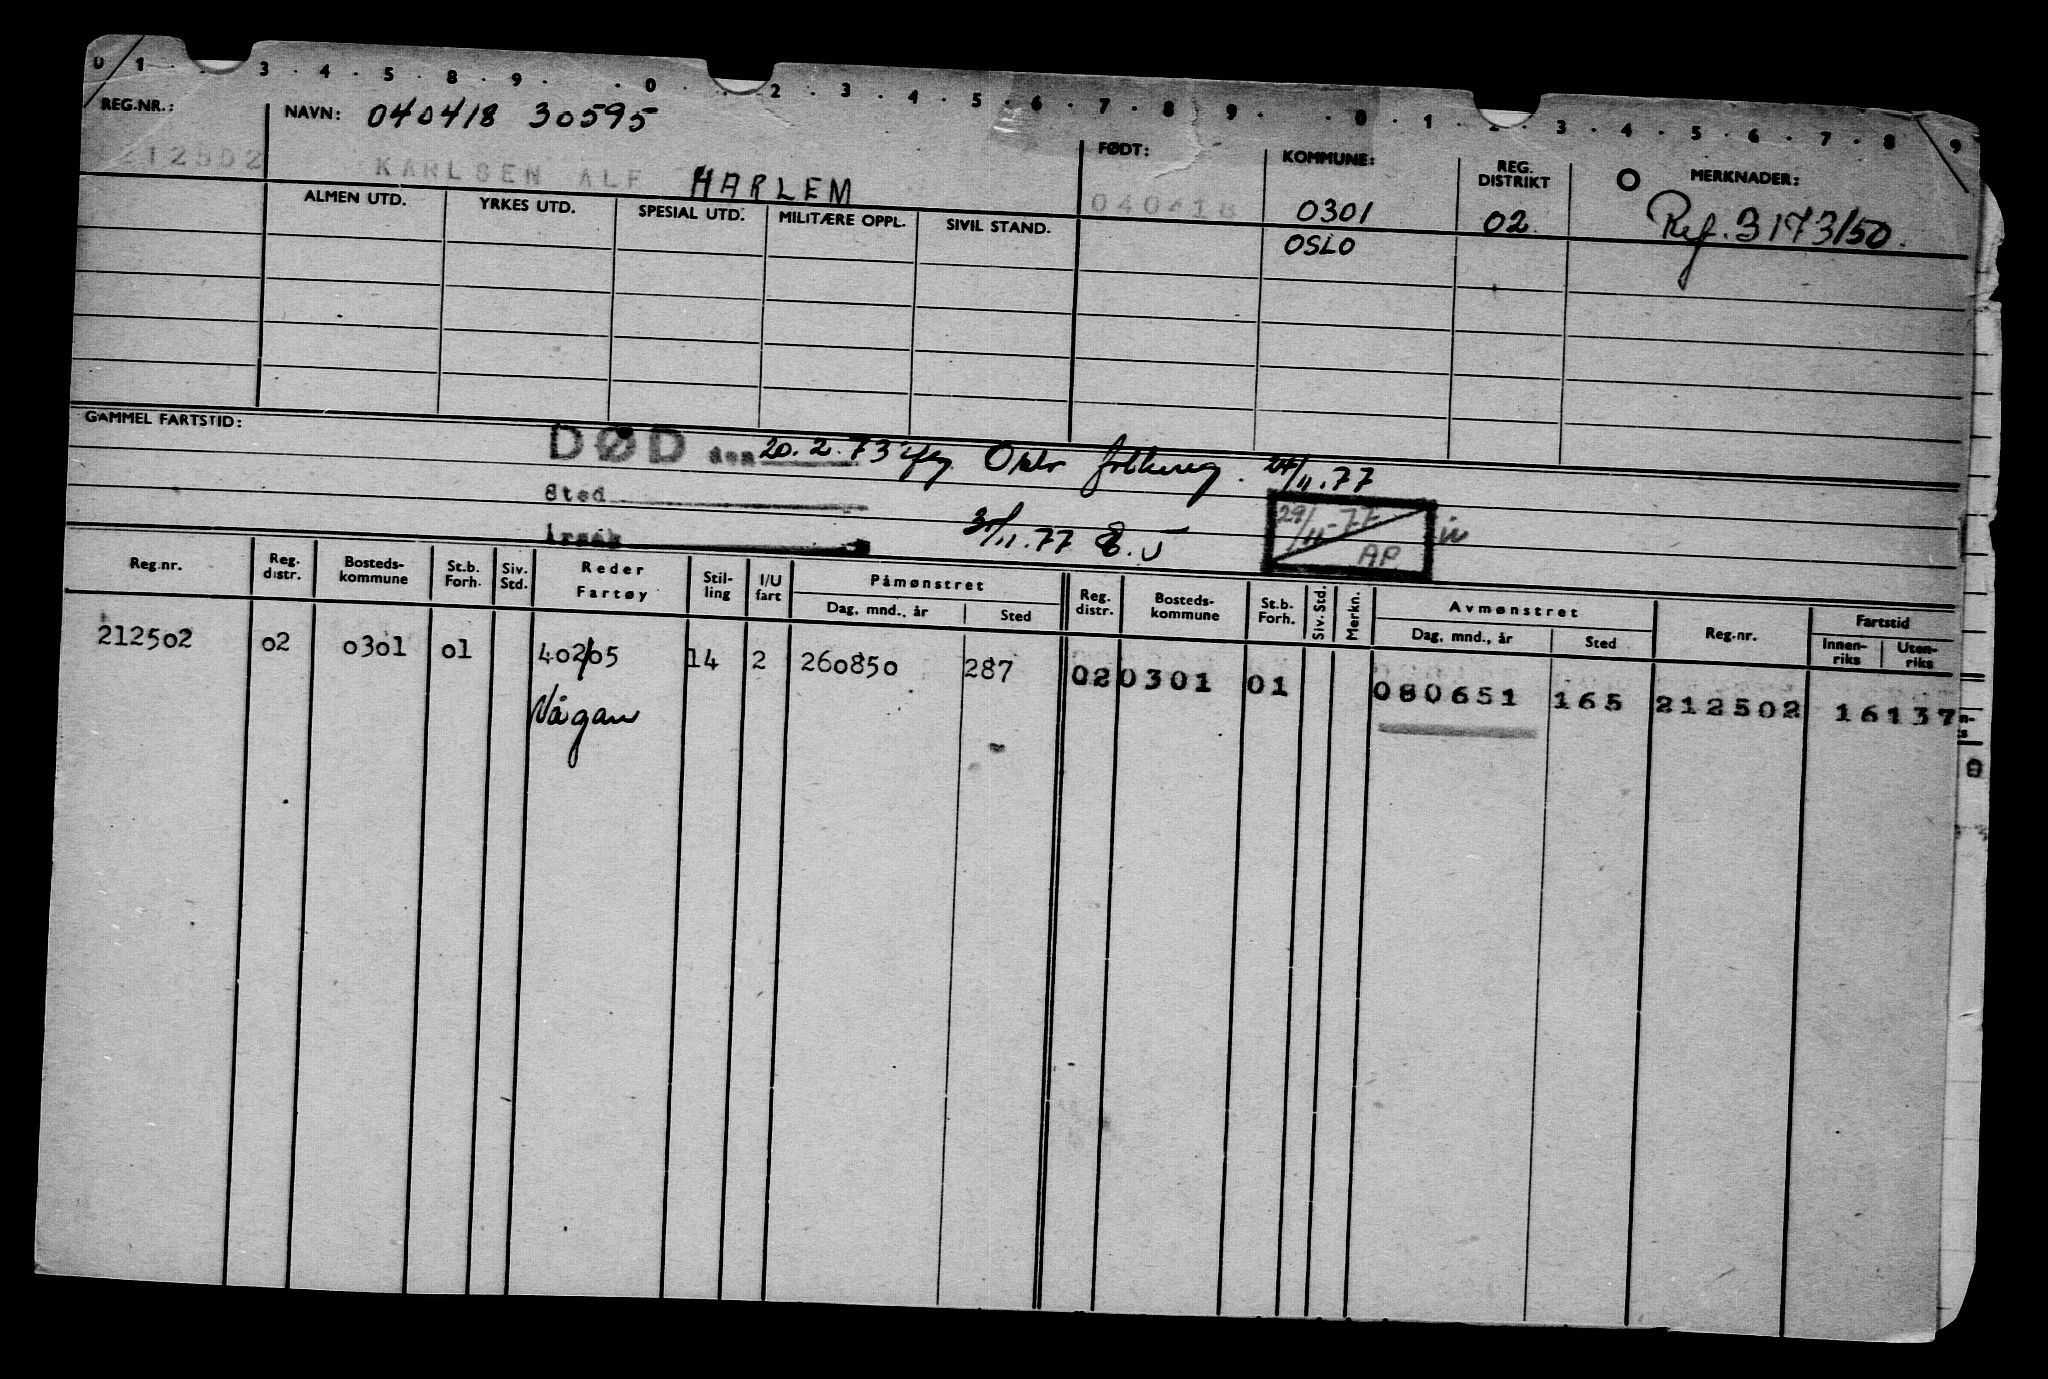 0 1 . . 3 . 4 . 5 . 8 . 9 . . 0 . . 2 . 3 . 4 . 5 . 6 . 7 . 8 . 9 . . 0 . 1 . 2 . 3 . 4 . 5 . 6 . 7 . 8 9
REG.NR.: NAVN: 040418 30595 FØDT: KOMMUNE: REG. DISTRIKT O MERKNADER:
212502 KARLSEN ALF HARLEM 040418 0301 02 Ref. 3173/50.
ALMEN UTD. YRKES UTD. SPESIAL UTD. MILITÆRE OPPL. SIVIL STAND. OSLO
GAMMEL FARTSTID:
DØD den 20.2.73 Oslo folkereg. 24/11.77
Sted
Årsak 30/11.77 29/11-77 AP
Reg.nr. Reg. distr. Bosteds-kommune St.b. Forh. Siv. Std. Reder Fartøy Stil-ling I/U fart Påmønstret Reg. distr. Bosteds-kommune St.b. Forh. Siv. Std. Merkn. Avmønstret Reg.nr. Fartstid
Dag, mnd., år Sted Dag, mnd., år Sted Innen-riks Uten-riks
212502 02 0301 01 402/05 14 2 260850 287 02 0301 01 080651 165 212502 16137
Vågan